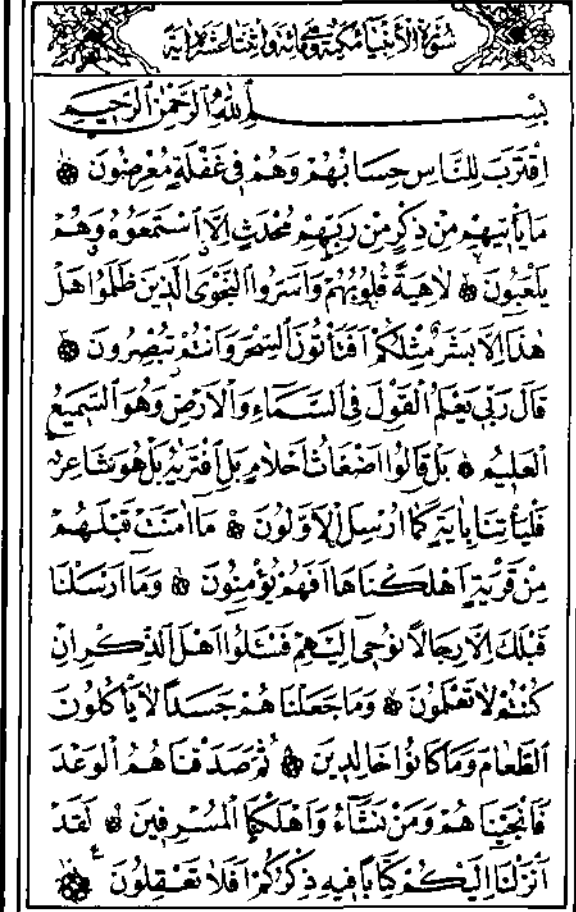 سُورَةُ الْأَنْبِيَاءِ مَكِّيَّةٌ وَهِيَ مِائَةٌ وَاثْنَتَا عَشْرَةَ آيَةً
بِسْمِ اللّٰهِ الرَّحْمٰنِ الرَّحِيمِ
اِقْتَرَبَ لِلنَّاسِ حِسَابُهُمْ وَهُمْ فِي غَفْلَةٍ مُعْرِضُونَ ۞
مَا يَأْتِيهِمْ مِنْ ذِكْرٍ مِنْ رَبِّهِمْ مُحْدَثٍ اِلَّا اسْتَمَعُوهُ وَهُمْ
يَلْعَبُونَ ۞ لَاهِيَةً قُلُوبُهُمْ وَاَسَرُّوا النَّجْوَى الَّذِينَ ظَلَمُوا هَلْ
هٰذَا اِلَّا بَشَرٌ مِثْلُكُمْ اَفَتَأْتُونَ السِّحْرَ وَاَنْتُمْ تُبْصِرُونَ ۞
قَالَ رَبِّي يَعْلَمُ الْقَوْلَ فِي السَّمَاءِ وَالْاَرْضِ وَهُوَ السَّمِيعُ
الْعَلِيمُ ۞ بَلْ قَالُوا اَضْغَاثُ اَحْلَامٍ بَلِ افْتَرٰيهُ بَلْ هُوَ شَاعِرٌ
فَلْيَأْتِنَا بِاٰيَةٍ كَمَا اُرْسِلَ الْاَوَّلُونَ ۞ مَا اٰمَنَتْ قَبْلَهُمْ
مِنْ قَرْيَةٍ اَهْلَكْنَاهَا اَفَهُمْ يُؤْمِنُونَ ۞ وَمَا اَرْسَلْنَا
قَبْلَكَ اِلَّا رِجَالًا نُوحِي اِلَيْهِمْ فَسْـَٔلُوا اَهْلَ الذِّكْرِ اِنْ
كُنْتُمْ لَا تَعْلَمُونَ ۞ وَمَا جَعَلْنَاهُمْ جَسَدًا لَا يَأْكُلُونَ
الطَّعَامَ وَمَا كَانُوا خَالِدِينَ ۞ ثُمَّ صَدَقْنَاهُمُ الْوَعْدَ
فَاَنْجَيْنَاهُمْ وَمَنْ نَشَاءُ وَاَهْلَكْنَا الْمُسْرِفِينَ ۞ لَقَدْ
اَنْزَلْنَا اِلَيْكُمْ كِتَابًا فِيهِ ذِكْرُكُمْ اَفَلَا تَعْقِلُونَ ۞